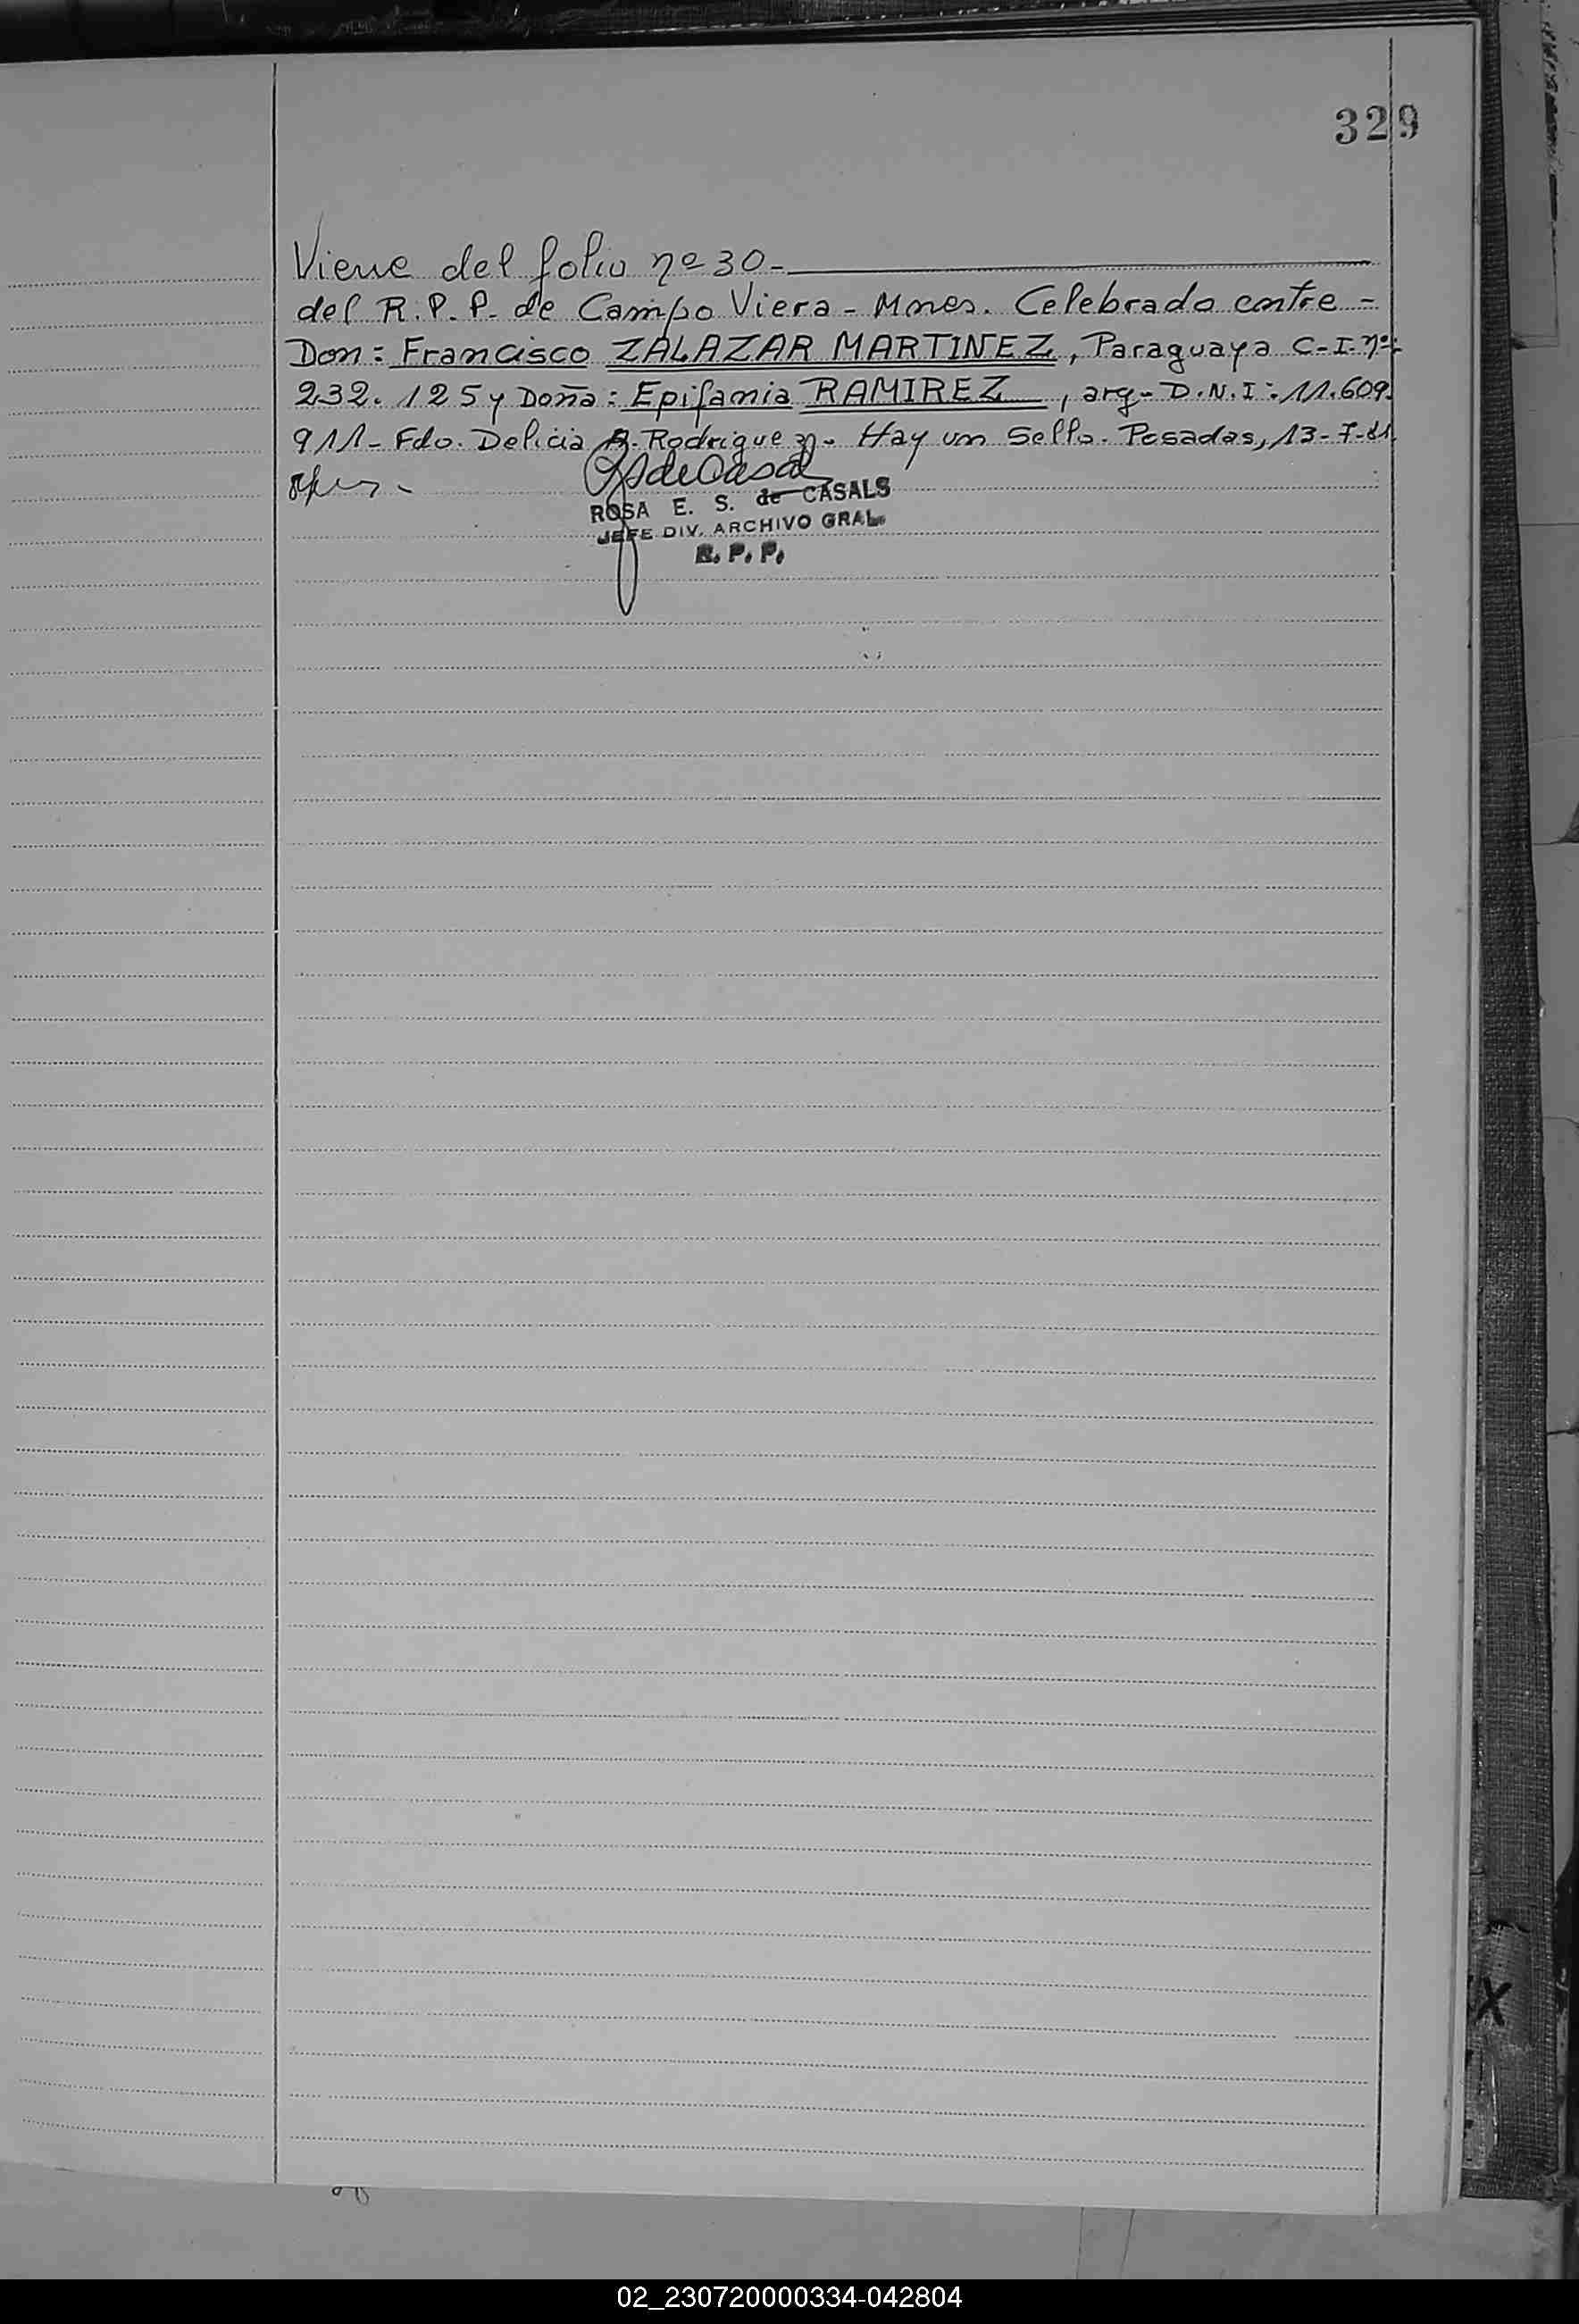 329
Viene del folio nº 30-
del R.P.P. de Campo Viera - Mnes. Celebrado entre -
Don: Francisco ZALAZAR MARTINEZ, Paraguaya C-I-nº:
232. 125 y Doña: Epifania RAMIREZ, arg- D.N.I: 11.609.
911- Fdo. Delicia B. Rodriguez - Hay un Sello. Posadas, 13-7-81.
ROSA E. S. de CASALS
JEFE DIV. ARCHIVO GRAL.
R. P. P.
X
02_230720000334-042804